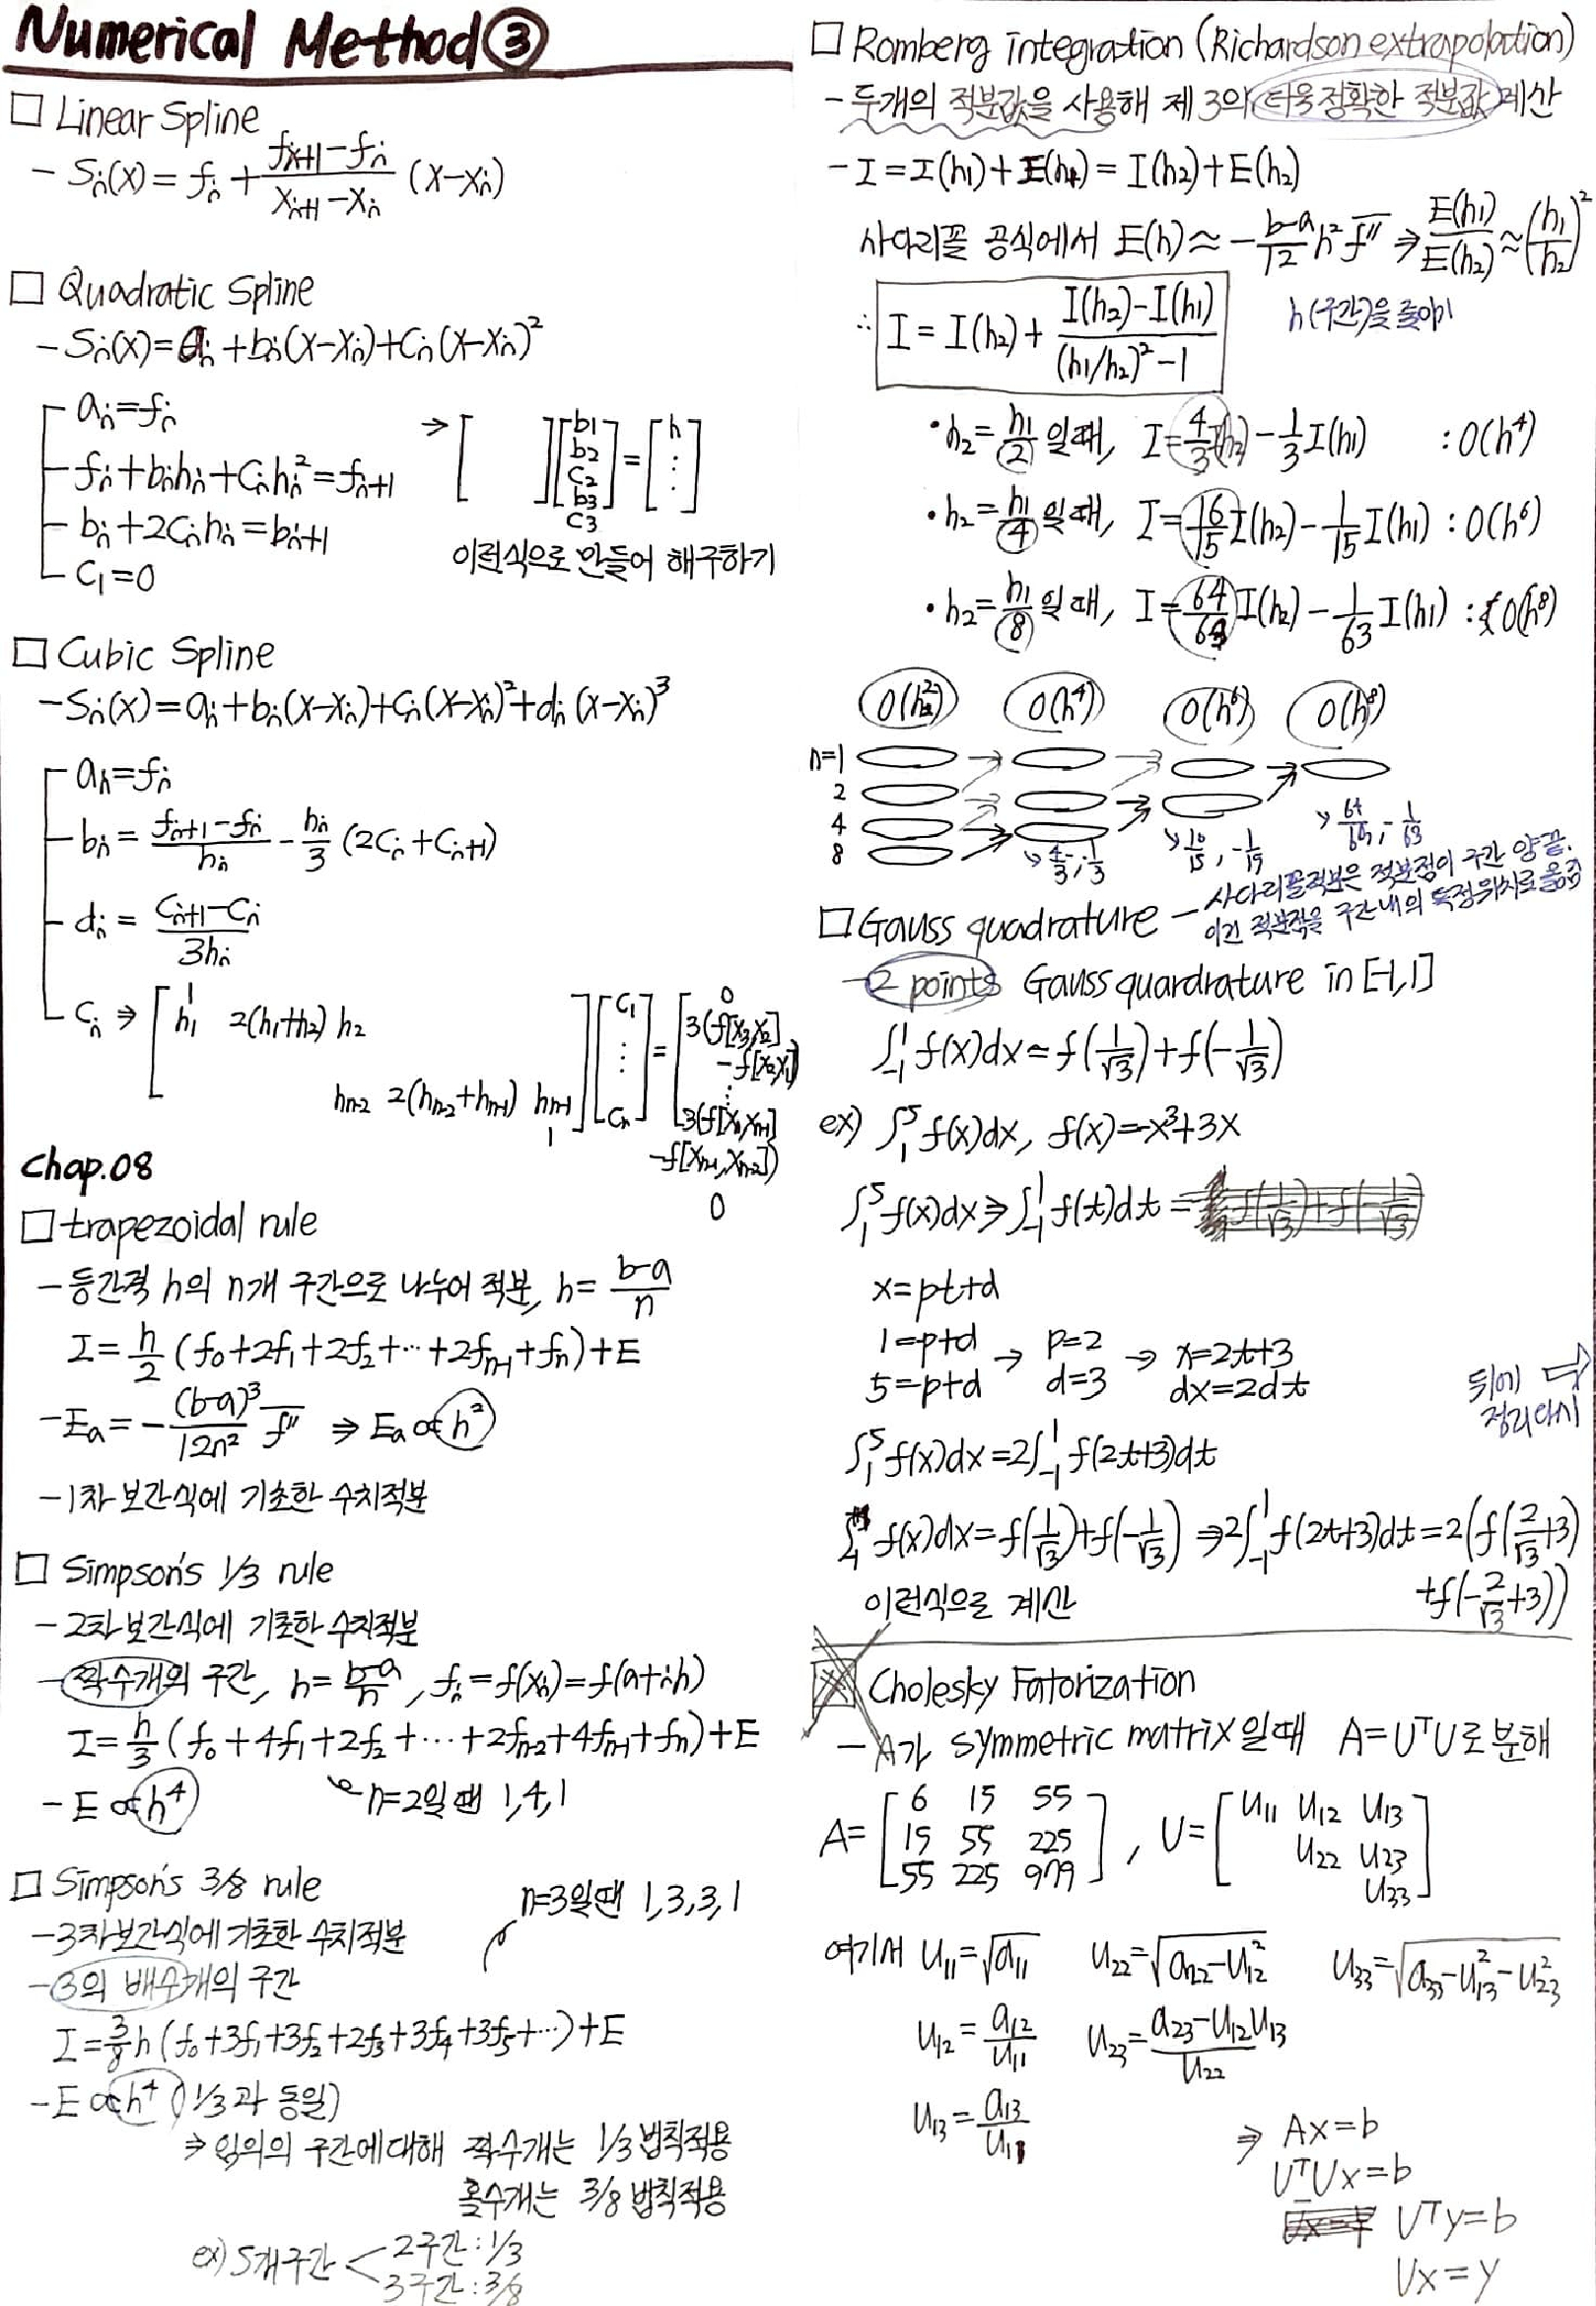 Numerical Method ③
□ Linear Spline
- Sᵢ(x) = fᵢ + (fᵢ₊₁ - fᵢ)/(xᵢ₊₁ - xᵢ) (x-xᵢ)
□ Quadratic Spline
- Sᵢ(x) = aᵢ + bᵢ(x-xᵢ) + cᵢ(x-xᵢ)²
aᵢ = fᵢ
fᵢ + bᵢhᵢ + cᵢhᵢ² = fᵢ₊₁
bᵢ + 2cᵢhᵢ = bᵢ₊₁
c₁ = 0
→ [ ] [b1 b2 c2 b3 c3] = [h ⋮]
이런식으로 만들어 해구하기
□ Cubic Spline
- Sᵢ(x) = aᵢ + bᵢ(x-xᵢ) + cᵢ(x-xᵢ)² + dᵢ(x-xᵢ)³
aᵢ = fᵢ
bᵢ = (fᵢ₊₁ - fᵢ)/hᵢ - hᵢ/3 (2cᵢ + cᵢ₊₁)
dᵢ = (cᵢ₊₁ - cᵢ)/3hᵢ
cᵢ ⇒ [1
h₁ 2(h₁+h₂) h₂
hₙ₋₂ 2(hₙ₋₂+hₙ₋₁) hₙ₋₁
1] [c₁ ⋮ cₙ] = [0
3(f[x₃,x₂]
-f[x₂,x₁])
⋮
3(f[xₙ,xₙ₋₁]
-f[xₙ₋₁,xₙ₋₂])
0
Chap.08
□ trapezoidal rule
- 등간격 h의 n개 구간으로 나누어 적분, h = (b-a)/n
I = h/2 (f₀ + 2f₁ + 2f₂ + ⋯ + 2fₙ₋₁ + fₙ) + E
- Eₐ = -(b-a)³/12n² f̅″ ⇒ Eₐ ∝ h²
- 1차 보간식에 기초한 수치적분
□ Simpson's 1/3 rule
- 2차 보간식에 기초한 수치적분
- 짝수개의 구간, h = (b-a)/n, fᵢ = f(xᵢ) = f(a+ih)
I = h/3 (f₀ + 4f₁ + 2f₂ + ⋯ + 2fₙ₋₂ + 4fₙ₋₁ + fₙ) + E
- E ∝ h⁴
n=2일땐 1,4,1
□ Simpson's 3/8 rule
n=3일땐 1,3,3,1
- 3차 보간식에 기초한 수치적분
- 3의 배수개의 구간
I = 3/8 h (f₀ + 3f₁ + 3f₂ + 2f₃ + 3f₄ + 3f₅ + ⋯) + E
- E ∝ h⁴ (1/3과 동일)
⇒ 임의의 구간에 대해 짝수개는 1/3 법칙적용
홀수개는 3/8 법칙적용
ex) 5개구간 < 2구간 : 1/3
3구간 : 3/8
□ Romberg integration (Richardson extrapolation)
- 두개의 적분값을 사용해 제 3의 더욱 정확한 적분값 계산
- I = I(h₁) + E(h₁) = I(h₂) + E(h₂)
사다리꼴 공식에서 E(h) ≈ -(b-a)/12 h² f̅″ ⇒ E(h₁)/E(h₂) ≈ (h₁/h₂)²
h(구간)을 줄이기
∴ I = I(h₂) + (I(h₂) - I(h₁))/((h₁/h₂)² - 1)
· h₂ = h₁/2 일때, I = 4/3 I(h₂) - 1/3 I(h₁) : O(h⁴)
· h₂ = h₁/4 일때, I = 16/15 I(h₂) - 1/15 I(h₁) : O(h⁶)
· h₂ = h₁/8 일때, I = 64/63 I(h₂) - 1/63 I(h₁) : O(h⁸)
O(h²) O(h⁴) O(h⁶) O(h⁸)
n=1
2
4
8
4/3, -1/3
16/15, -1/15
64/63, -1/63
□ Gauss quadrature - 사다리꼴적분은 적분점이 구간 양끝.
이건 적분점을 구간내의 특정위치로 옮김
- 2 points Gauss quardrature in [-1,1]
∫₋₁¹ f(x)dx ≃ f(1/√3) + f(-1/√3)
ex) ∫₁⁵ f(x)dx, f(x) = -x³+3x
∫₁⁵ f(x)dx ⇒ ∫₋₁¹ f(t)dt =
x = pt+d
1 = p+d → p=2 → x = 2t+3
5 = p+d d=3 dx = 2dt
뒤에
정리다시
∫₁⁵ f(x)dx = 2∫₋₁¹ f(2t+3)dt
∫₋₁¹ f(x)dx = f(1/√3) + f(-1/√3) ⇒ 2∫₋₁¹ f(2t+3)dt = 2(f(2/√3+3)
+f(-2/√3+3))
이런식으로 계산
Cholesky Fatorization
- A가 symmetric matrix일때 A = UᵀU로 분해
A = [6 15 55
15 55 225
55 225 979], U = [u₁₁ u₁₂ u₁₃
u₂₂ u₂₃
u₃₃]
여기서 u₁₁ = √a₁₁ u₂₂ = √(a₂₂ - u₁₂²) u₃₃ = √(a₃₃ - u₁₃² - u₂₃²)
u₁₂ = a₁₂/u₁₁ u₂₃ = (a₂₃ - u₁₂u₁₃)/u₂₂
u₁₃ = a₁₃/u₁₁
⇒ Ax = b
UᵀUx = b
Uᵀy = b
Ux = y